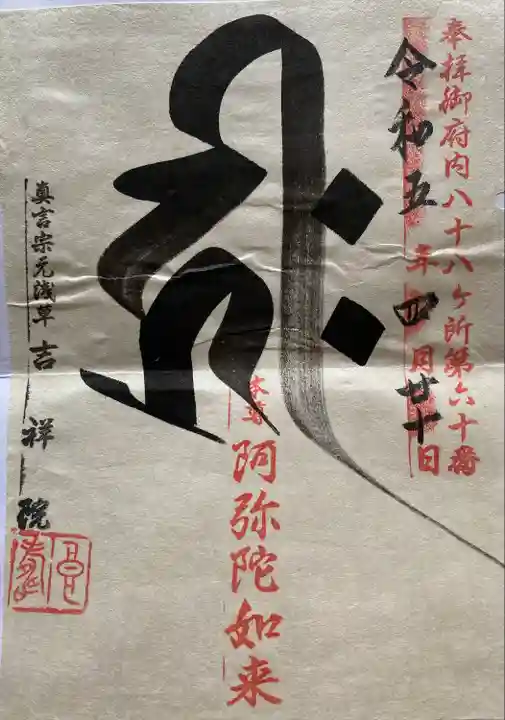 奉拝御府内八十八ヶ所第六十番
令和五年四月廿日
𑖮𑖿𑖨𑖱𑖾
本尊 阿弥陀如来
眞言宗元浅草 吉祥院